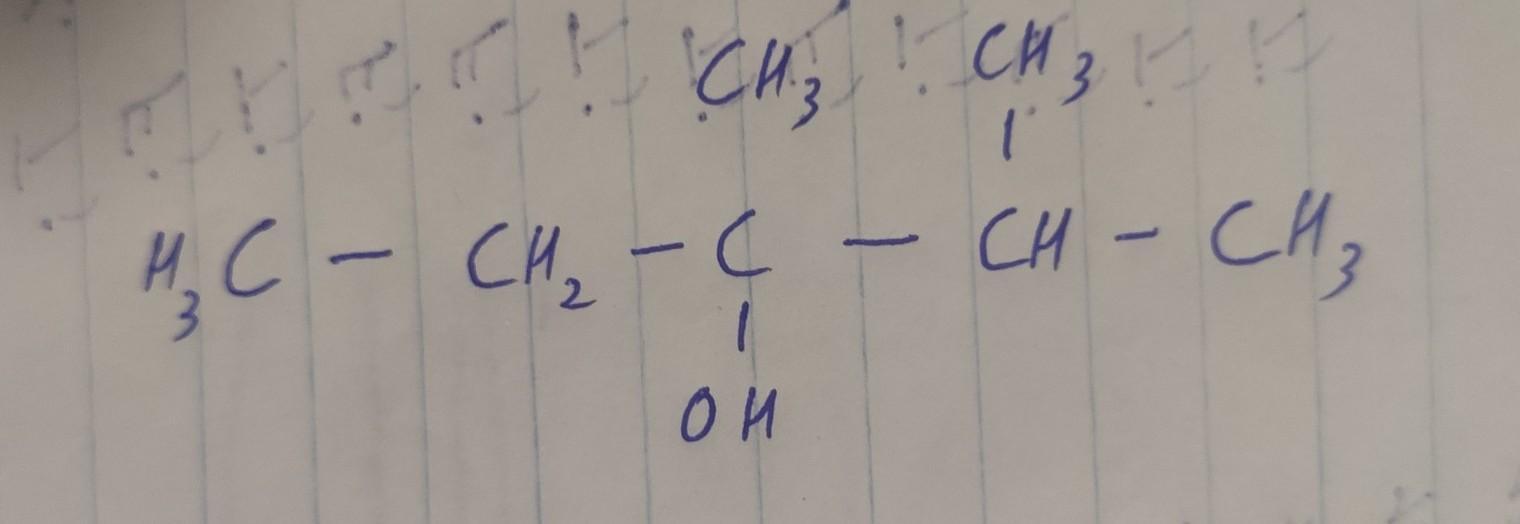 CH₃ CH₃
H₃C - CH₂ - C - CH - CH₃
OH